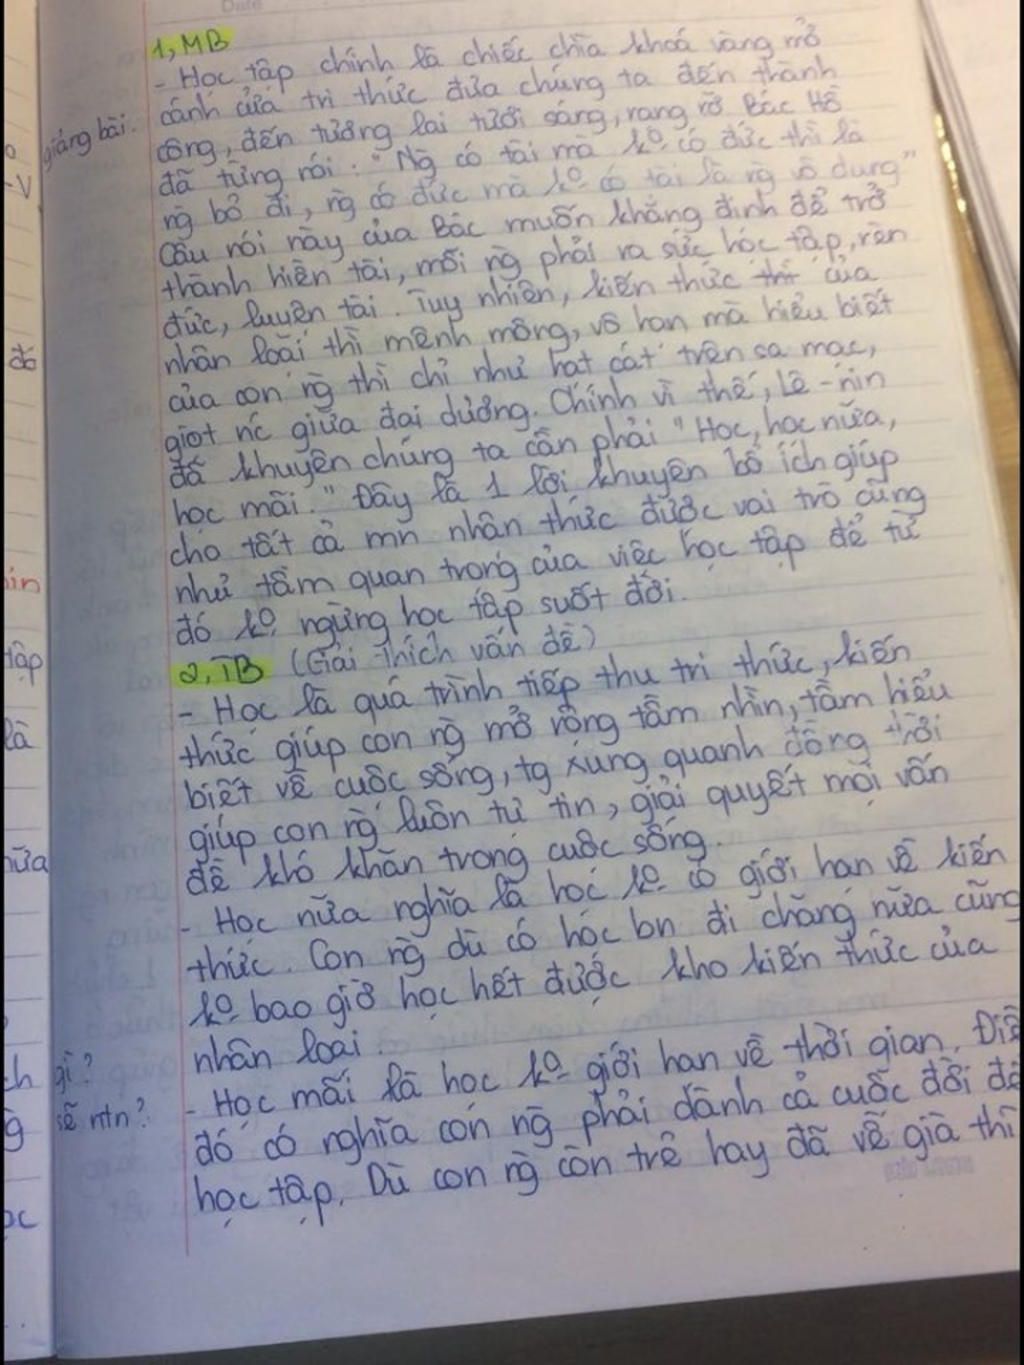 1, MB
- Học tập chính là chiếc chìa khoá vàng mở
cánh cửa tri thức đưa chúng ta đến thành
công, đến tương lai tươi sáng, rạng rỡ. Bác Hồ
đã từng nói: "Ng̀ có tài mà ko có đức thì là
ng̀ bỏ đi, ng̀ có đức mà ko có tài là ng̀ vô dụng"
Câu nói này của Bác muốn khẳng định để trở
thành hiền tài, mỗi ng̀ phải ra sức học tập, rèn
đức, luyện tài. Tuy nhiên, kiến thức của
nhân loại thì mênh mông, vô hạn mà hiểu biết
của con ng̀ thì chỉ như hạt cát trên sa mạc,
giọt nc giữa đại dương. Chính vì thế, Lê-nin
đã khuyên chúng ta cần phải "Học, học nữa,
học mãi." Đây là 1 lời khuyên bổ ích giúp
cho tất cả mn nhận thức được vai trò cũng
như tầm quan trọng của việc học tập để từ
đó ko ngừng học tập suốt đời.
2, TB (Giải thích vấn đề)
- Học là quá trình tiếp thu tri thức, kiến
thức giúp con ng̀ mở rộng tầm nhìn, tầm hiểu
biết về cuộc sống, tg xung quanh đồng thời
giúp con ng̀ luôn tự tin, giải quyết mọi vấn
đề khó khăn trong cuộc sống.
- Học nữa nghĩa là học ko có giới hạn về kiến
thức. Con ng̀ dù có học bn đi chăng nữa cũng
ko bao giờ học hết được kho kiến thức của
nhân loại.
- Học mãi là học ko giới hạn về thời gian. Điề
đó có nghĩa con ng̀ phải dành cả cuộc đời để
học tập. Dù con ng̀ còn trẻ hay đã về già thì
giảng bài.
gì?
sẽ ntn?
đó
tập
là
nữa